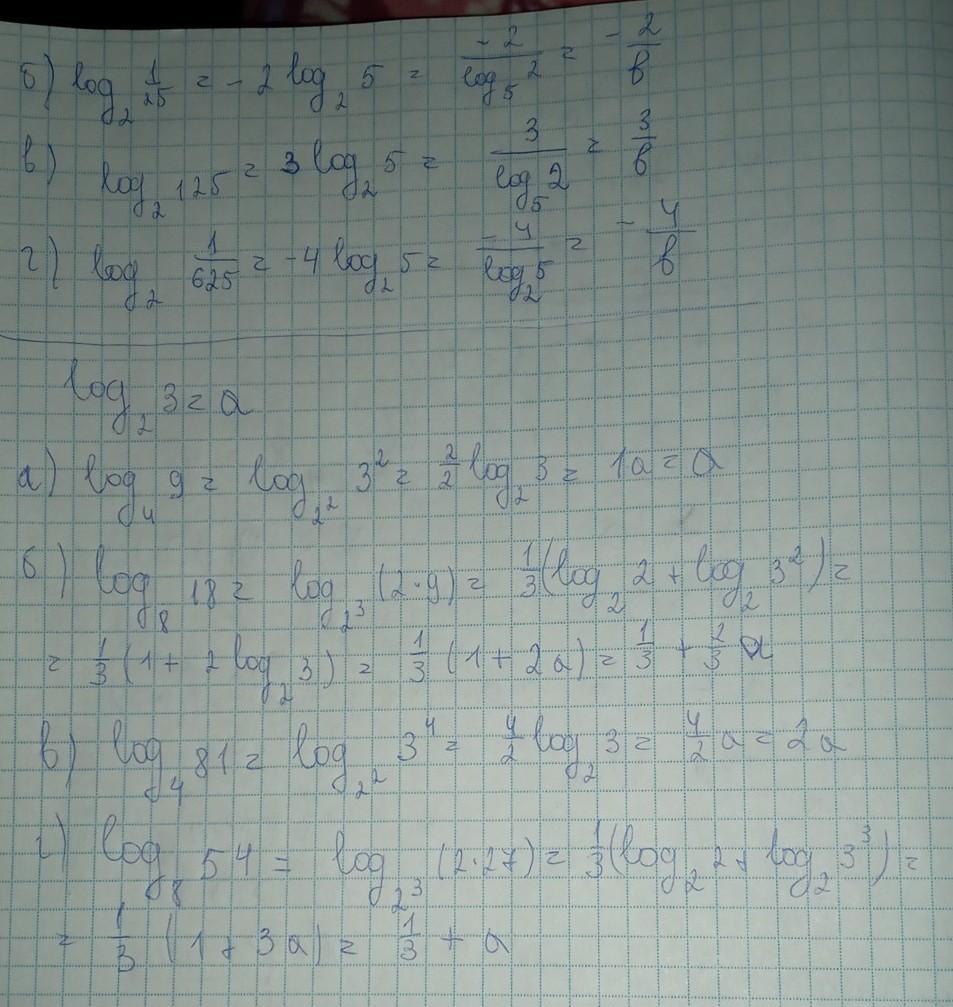 б) log₂ 1/25 = -2 log₂ 5 = -2/log₅ 2 = -2/b
в) log₂ 125 = 3 log₂ 5 = 3/log₅ 2 = 3/b
г) log₂ 1/625 = -4 log₂ 5 = -4/log₂ 5 = -4/b
log₂ 3 = a
а) log₄ 9 = log₂² 3² = 2/2 log₂ 3 = 1a = a
б) log₈ 18 = log₂³ (2·9) = 1/3 (log₂ 2 + log₂ 3²) =
= 1/3 (1 + 2 log₂ 3) = 1/3 (1 + 2a) = 1/3 + 2/3 a
в) log₄ 81 = log₂² 3⁴ = 4/2 log₂ 3 = 4/2 a = 2a
г) log₈ 54 = log₂³ (2·27) = 1/3 (log₂ 2 + log₂ 3³) =
= 1/3 (1 + 3a) = 1/3 + a